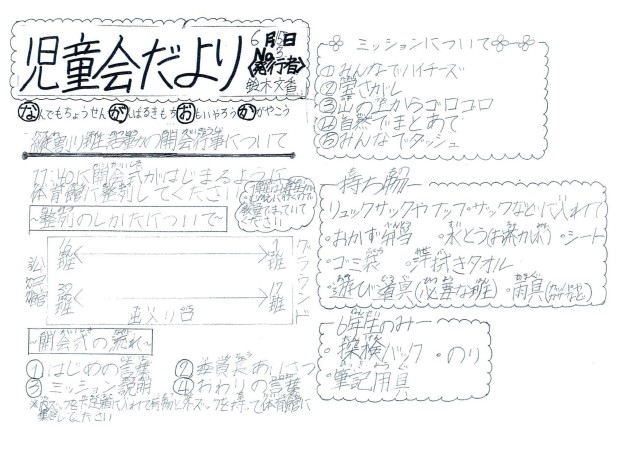 児童会だより
6月15日
No.5
〈発行者〉
鈴木文省
なんでもちょうせん がんばるきもち おもいやろう かがやこう
縦割り班活動の開会行事について
11:40に開会式がはじまるように
体育館に整列してください
~整列のしかたについて~
班 班
グラウンド
班 班
出入り口
~開会式の流れ~
①はじめの言葉 ②委員長あいさつ
③ミッション説明 ④おわりの言葉
体育館に
してください
ミッションについて
①みんなでハイチーズ
②宝さがし
③山の上からゴロゴロ
④自然でまとあて
⑤みんなでダッシュ
持ち物
リュックサックやナップ・サックなどに入れて
・おかず弁当 ・水とう(お茶か水) ・シート
・ゴミ袋 ・汗拭きタオル
・遊び道具(必要な班) ・雨具(かっぱなど)
6年生のみ
・探検バック ・のり
・筆記用具